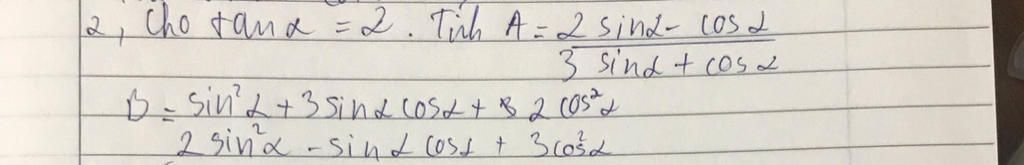 2, Cho tanα = 2. Tính A = 2 sinα - cosα
3 sinα + cosα
B = sin²α + 3 sinα cosα + 2 cos²α
2 sin²α - sinα cosα + 3cos²α